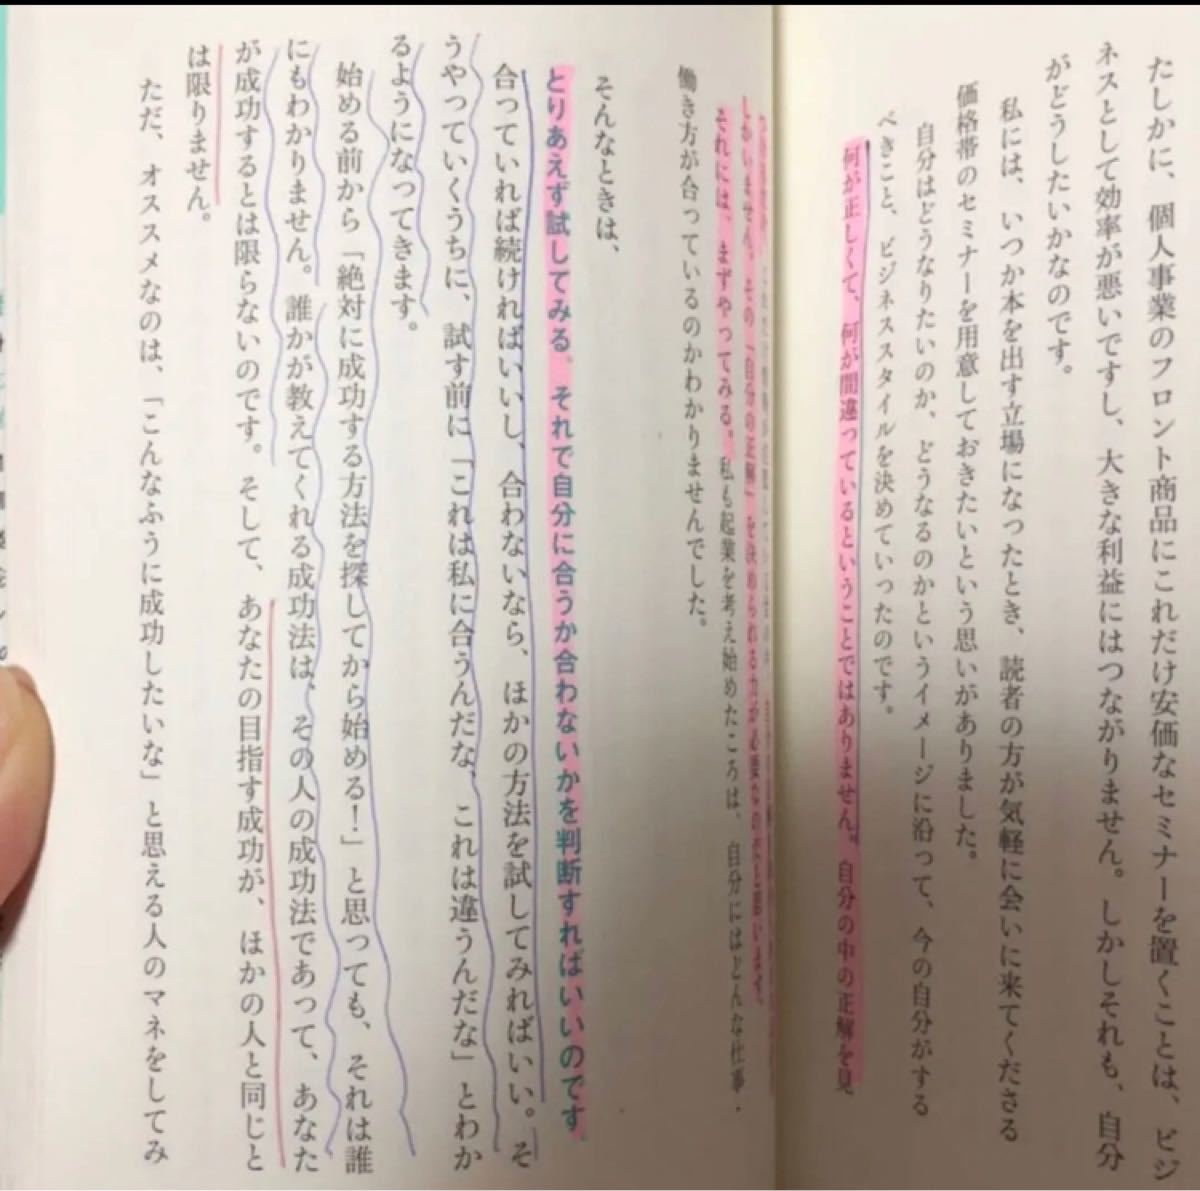 たしかに、個人事業のフロント商品にこれだけ安価なセミナーを置くことは、ビジ
ネスとして効率が悪いですし、大きな利益にはつながりません。しかしそれも、自分
がどうしたいかなのです。
私には、いつか本を出す立場になったとき、読者の方が気軽に会いに来てくださる
価格帯のセミナーを用意しておきたいという思いがありました。
自分はどうなりたいのか、どうなるのかというイメージに沿って、今の自分がする
べきこと、ビジネススタイルを決めていったのです。
何が正しくて、何が間違っているということではありません。自分の中の正解を見
しかいません。その「自分の正解」を決められる力が必要なのだと思います。
それには、まずやってみる。私も起業を考え始めたころは、自分にはどんな仕事・
働き方が合っているのかわかりませんでした。
そんなときは、
とりあえず試してみる。それで自分に合うか合わないかを判断すればいいのです。
合っていれば続ければいいし、合わないなら、ほかの方法を試してみればいい。そ
うやっていくうちに、試す前に「これは私に合うんだな、これは違うんだな」とわか
るようになってきます。
始める前から「絶対に成功する方法を探してから始める!」と思っても、それは誰
にもわかりません。誰かが教えてくれる成功法は、その人の成功法であって、あなた
が成功するとは限らないのです。そして、あなたの目指す成功が、ほかの人と同じと
は限りません。
ただ、オススメなのは、「こんなふうに成功したいな」と思える人のマネをしてみ